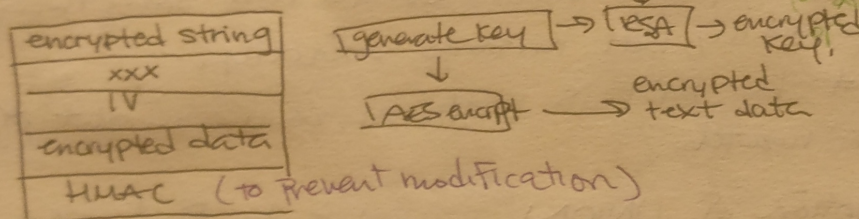 encrypted string
xxx
IV
encrypted data
HMAC (to prevent modification)
generate key → RSA → encrypted key.
↓
AES encrypt → encrypted text data